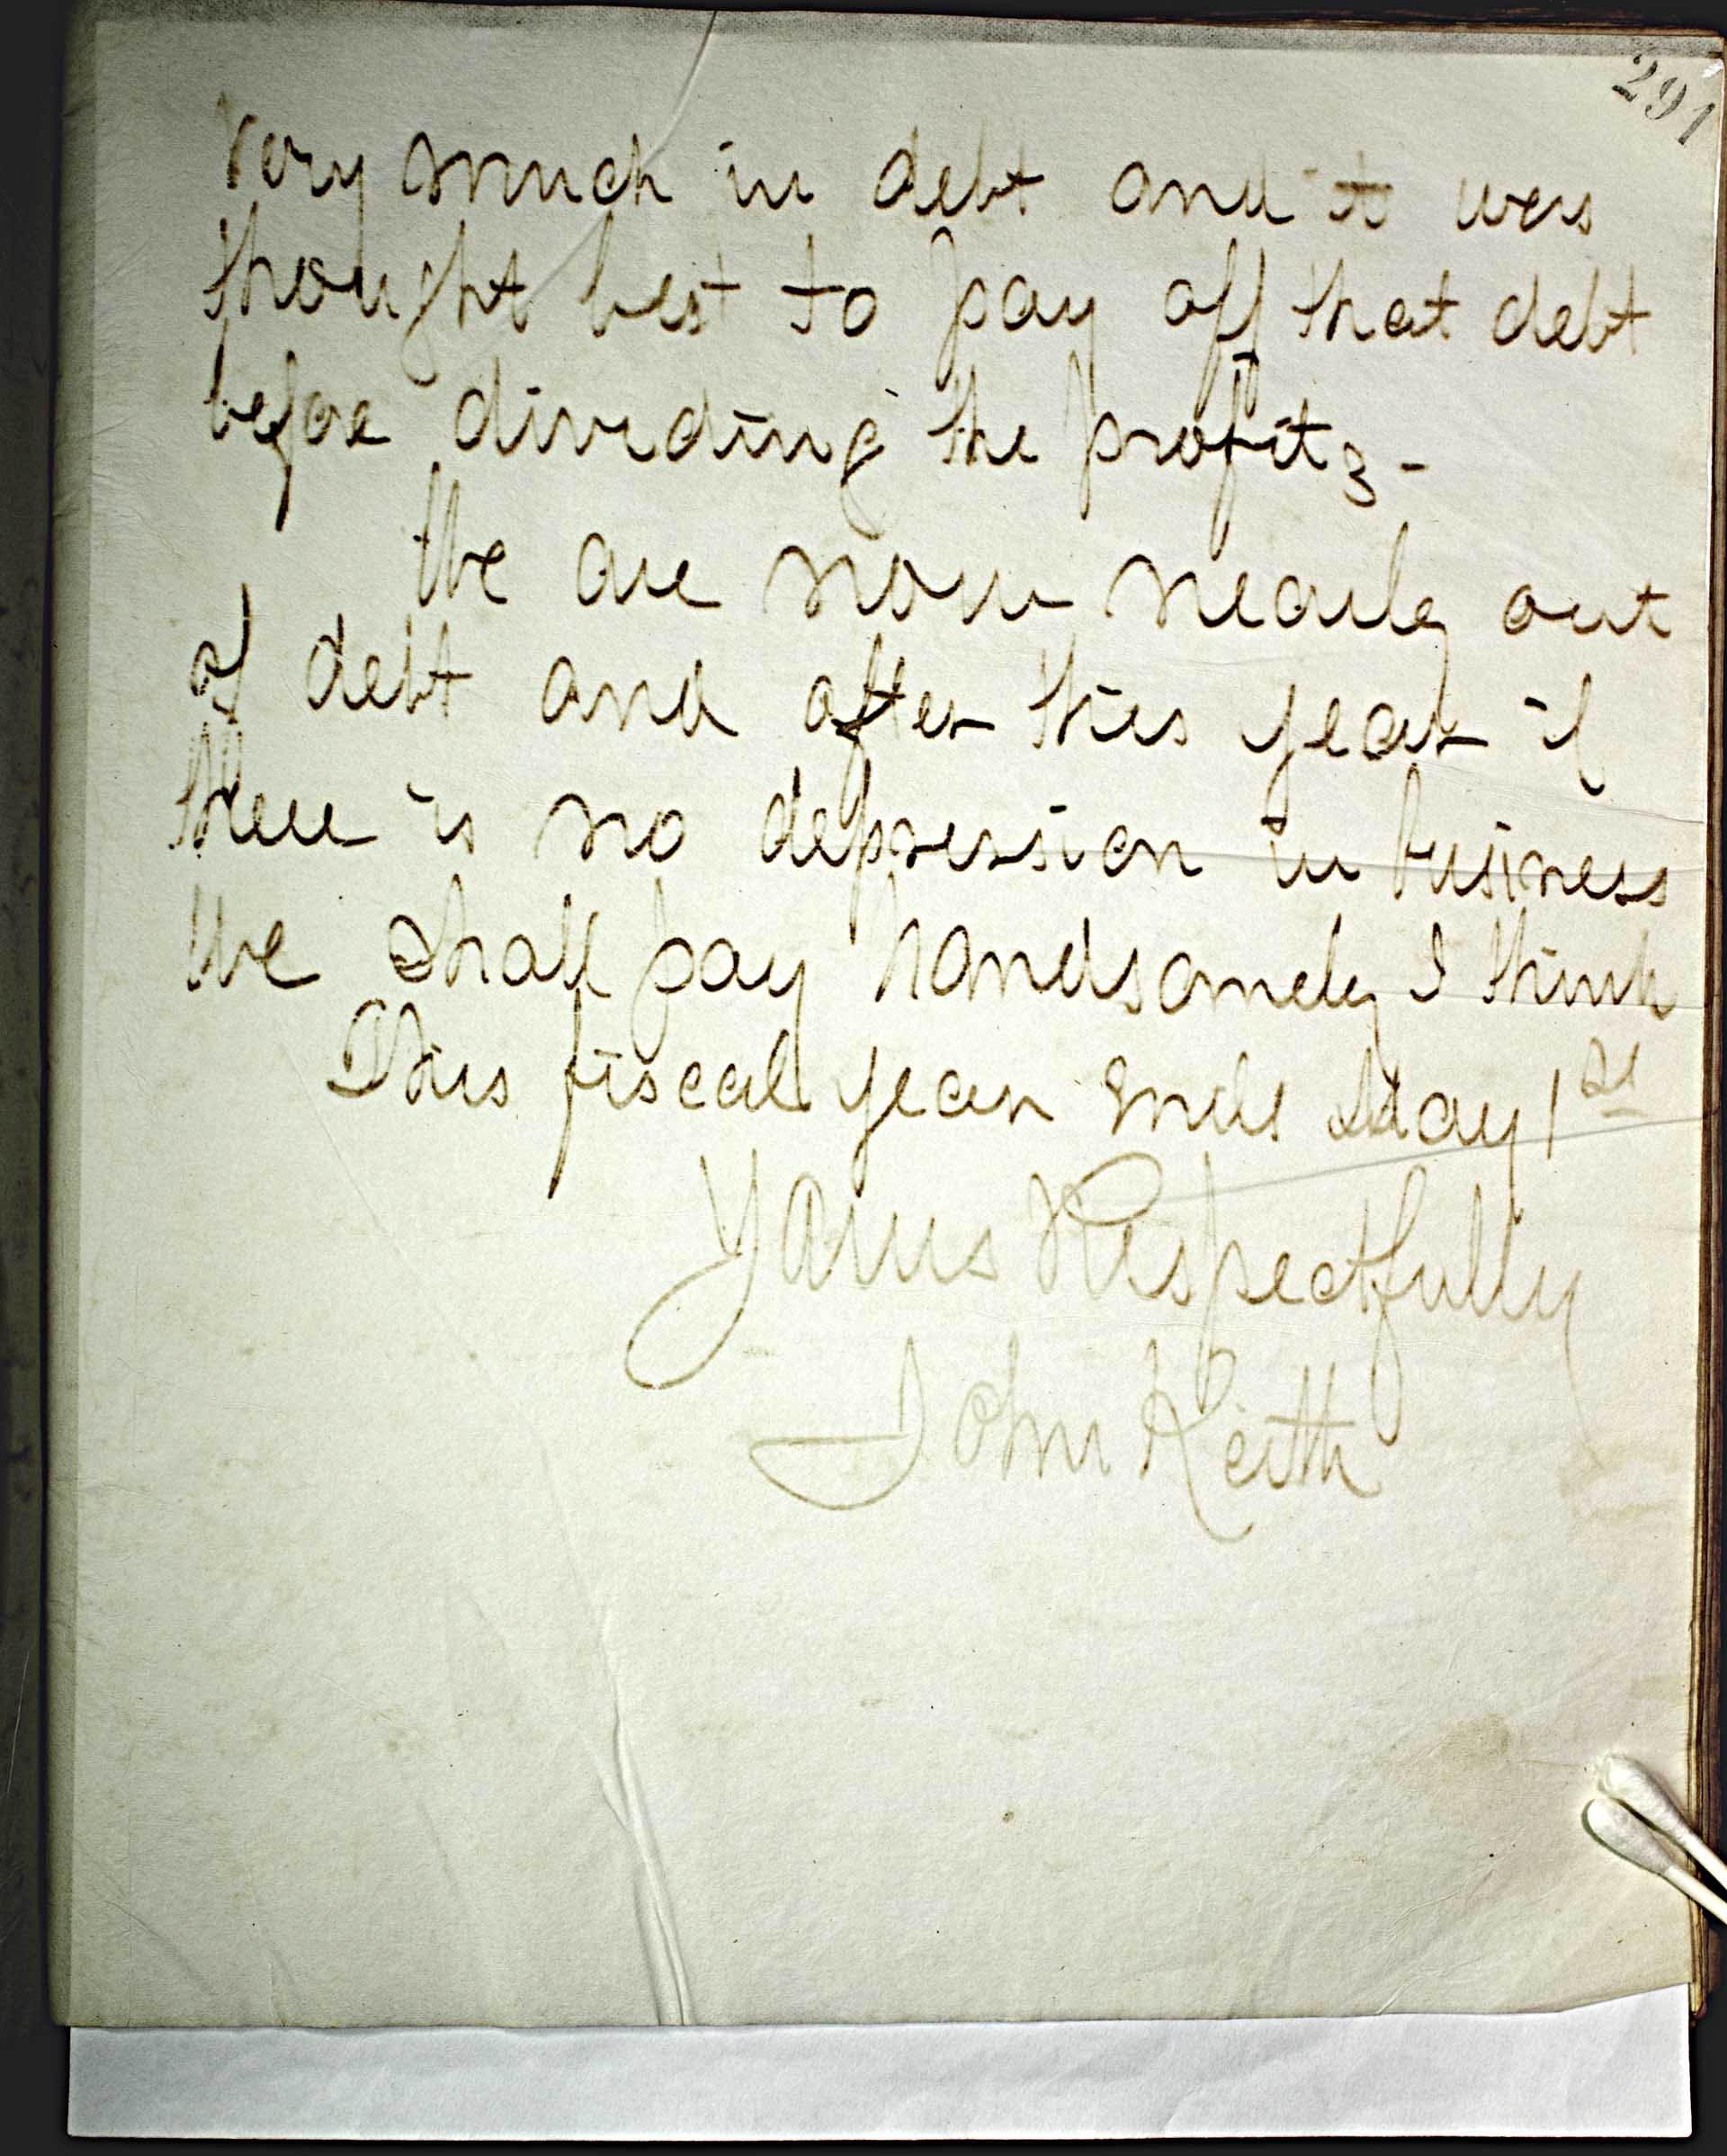 291
very much in debt and it was
thought best to pay off that debt
before dividing the profits -
We are now nearly out
of debt and after this year if
there is no depression in business
we shall pay handsomely I think
This fiscal year ends May 1st
Yours Respectfully
John Keith